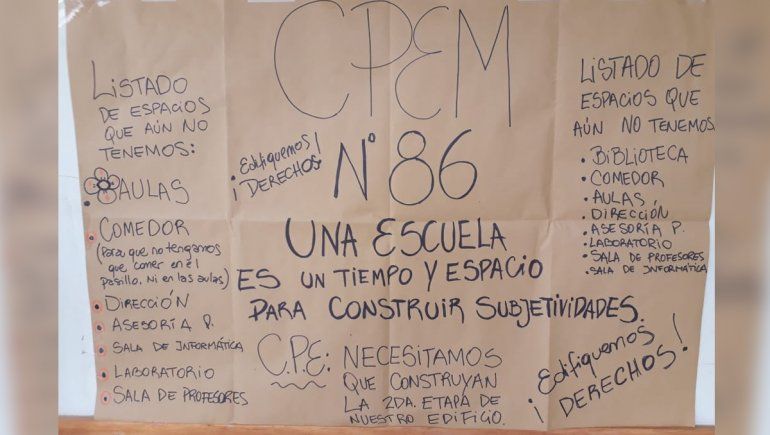 LISTADO
DE ESPACIOS
QUE AÚN NO
TENEMOS:
• AULAS
• COMEDOR
(Para que no tengamos
que comer en el
pasillo. Ni en las aulas)
• DIRECCIÓN
• ASESORÍA P.
• SALA DE INFORMÁTICA
• LABORATORIO
• SALA DE PROFESORES
CPEM
Nº 86
¡Edifiquemos
DERECHOS!
UNA ESCUELA
ES UN TIEMPO Y ESPACIO
PARA CONSTRUIR SUBJETIVIDADES.
C.P.E: NECESITAMOS
QUE CONSTRUYAN
LA 2DA. ETAPA DE
NUESTRO EDIFICIO.
LISTADO DE
ESPACIOS QUE
AÚN NO TENEMOS
• BIBLIOTECA
• COMEDOR
• AULAS
• DIRECCIÓN
• ASESORÍA P.
• LABORATORIO
• SALA DE PROFESORES
• SALA DE INFORMÁTICA
¡Edifiquemos
DERECHOS!